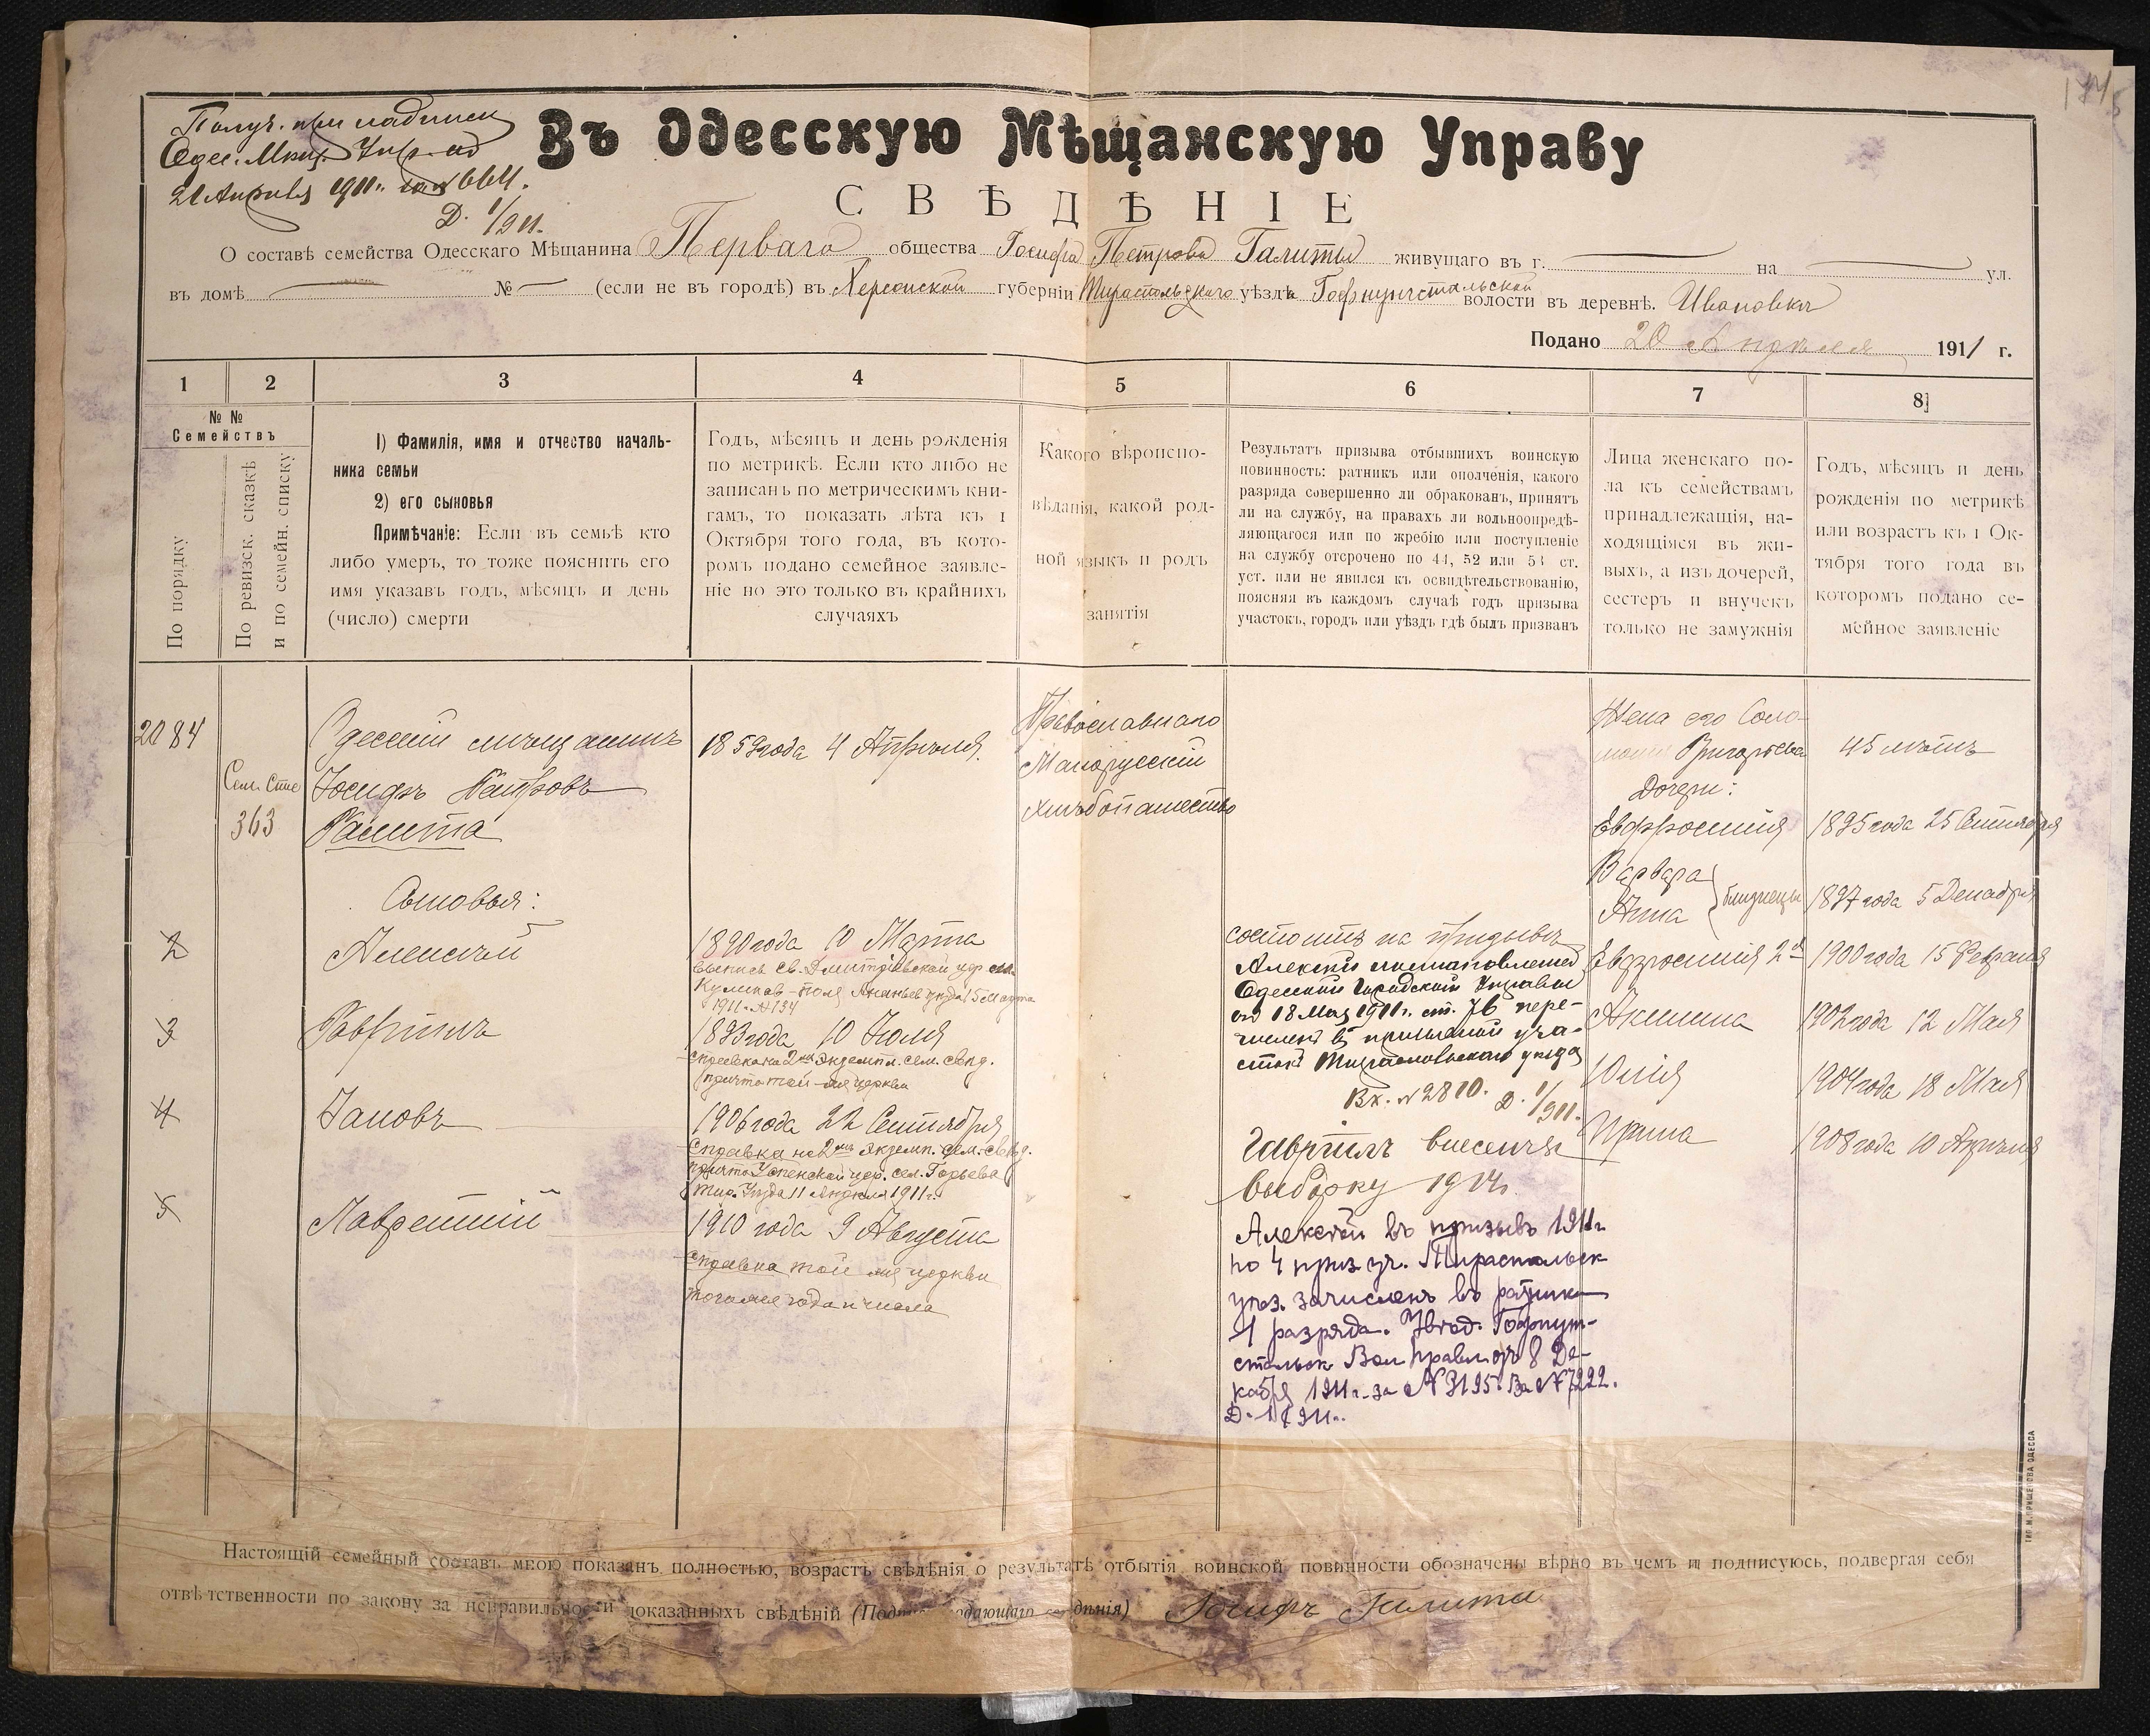 Получ. при надписи
Одес. Мѣщ. Упр. от
21 Апрѣля 1911 г. за № 6664.
Д. 1/911.
Въ Одесскую Мѣщанскую Управу
СВѢДѢНІЕ
О составѣ семейства Одесскаго Мѣщанина Перваго общества Іосифа Петрова Галиты живущаго въ г. на ул.
въ домѣ № (если не въ городѣ) въ Херсонской губерніи Тираспольскаго уѣзда Гофнунгстальской волости въ деревнѣ. Ивановка
Подано 20 Апрѣля 1911 г.
1 2 3 4 5 6 7 8
№ №
Семействъ
По порядку
По ревизск. сказкѣ
и по семейн. списку
1) Фамилія, имя и отчество началь-
ника семьи
2) его сыновья
Примѣчаніе: Если въ семьѣ кто
либо умеръ, то тоже пояснить его
имя указавъ годъ, мѣсяцъ и день
(число) смерти
Годъ, мѣсяцъ и день рожденія
по метрикѣ. Если кто либо не
записанъ по метрическимъ кни-
гамъ, то показать лѣта къ 1
Октября того года, въ кото-
ромъ подано семейное заявле-
ніе но это только въ крайнихъ
случаяхъ
Какого вѣроиспо-
вѣданія, какой род-
ной языкъ и родъ
занятія
Результатъ призыва отбывшихъ воинскую
повинность: ратникъ или ополченія, какого
разряда совершенно ли обракованъ, принятъ
ли на службу, на правахъ ли вольноопредѣ-
ляющагося или по жребію или поступленіе
на службу отсрочено по 44, 52 или 53 ст.
уст. или не явился къ освидѣтельствованію,
поясняя въ каждомъ случаѣ годъ призыва
участокъ, городъ или уѣздъ гдѣ былъ призванъ
Лица женскаго по-
ла къ семействамъ
принадлежащія, на-
ходящіяся въ жи-
выхъ, а изъ дочерей,
сестеръ и внучекъ
только не замужнія
Годъ, мѣсяцъ и день
рожденія по метрикѣ
или возрастъ къ 1 Ок-
тября того года въ
которомъ подано се-
мейное заявленіе
2084
Сем. Спис
363
Одесскій мѣщанинъ
Іосифъ Петровъ
Галита
1859 года 4 Апрѣля.
Православнаго
Малорусскій
хлѣбопашество
Жена его Соло-
Григорьева
45 лѣтъ
Дочери:
Евфросинія 1895 года 25 Сентября
Варвара
Анна
близнецы 1897 года 5 Декабря
Евфросинія 2я 1900 года 15 Февраля
Акилина 1902 года 12 Мая
Юлія 1904 года 18 Мая
Ирина 1908 года 10 Апрѣля
Сыновья:
2 Алексѣй 1890 года 10 Марта
выпись св. Дмитріевской цер сел.
Куликов-поля Ананьев. уѣзда 15 Марта
1911 г. № 134
3 Гавріилъ 1893 года 10 Іюля
справка на 2мъ экземпл. сем. свѣд.
причта той-же церкви
4 Іаковъ 1906 года 22 Сентября
Справка на 2мъ экземп. сем. свѣд.
причта Успенской цер. сел. Горьева
Тир. Уѣзда 11 Апрѣля 1911 г.
5 Лаврентій 1910 года 9 Августа
справка той же церкви
того же года и числа
состоитъ на призывѣ
Алексѣй постановленіемъ
Одесской Городской Управы
от 18 Мая 1911 г. ст. 76 пере-
численъ въ призывной уча-
стокъ Тираспольскаго уѣзда
Вх. № 2810. Д. 1/911.
Гавріилъ внесенъ
выборку 1914 г.
Алексѣй въ призывъ 1911 г.
по 4 приз уч. Тираспольск
уѣз. зачисленъ въ ратники
1 разряда. Увѣд. Гофнунг-
стальск Вол Правл. отъ 8 Де-
кабря 1911 г. за № 3195. Вх № 7222.
Д. 1/911 г.
Настоящій семейный составъ мною показанъ полностью, возрастъ свѣдѣнія о результатѣ отбытія воинской повинности обозначены вѣрно въ чемъ и подписуюсь, подвергая себя
отвѣтственности по закону за неправильности показанныхъ свѣдѣній Іосифъ Галита